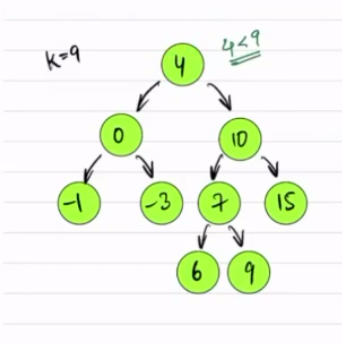 k=9
4<9
4
0
10
-1
-3
7
15
6
9